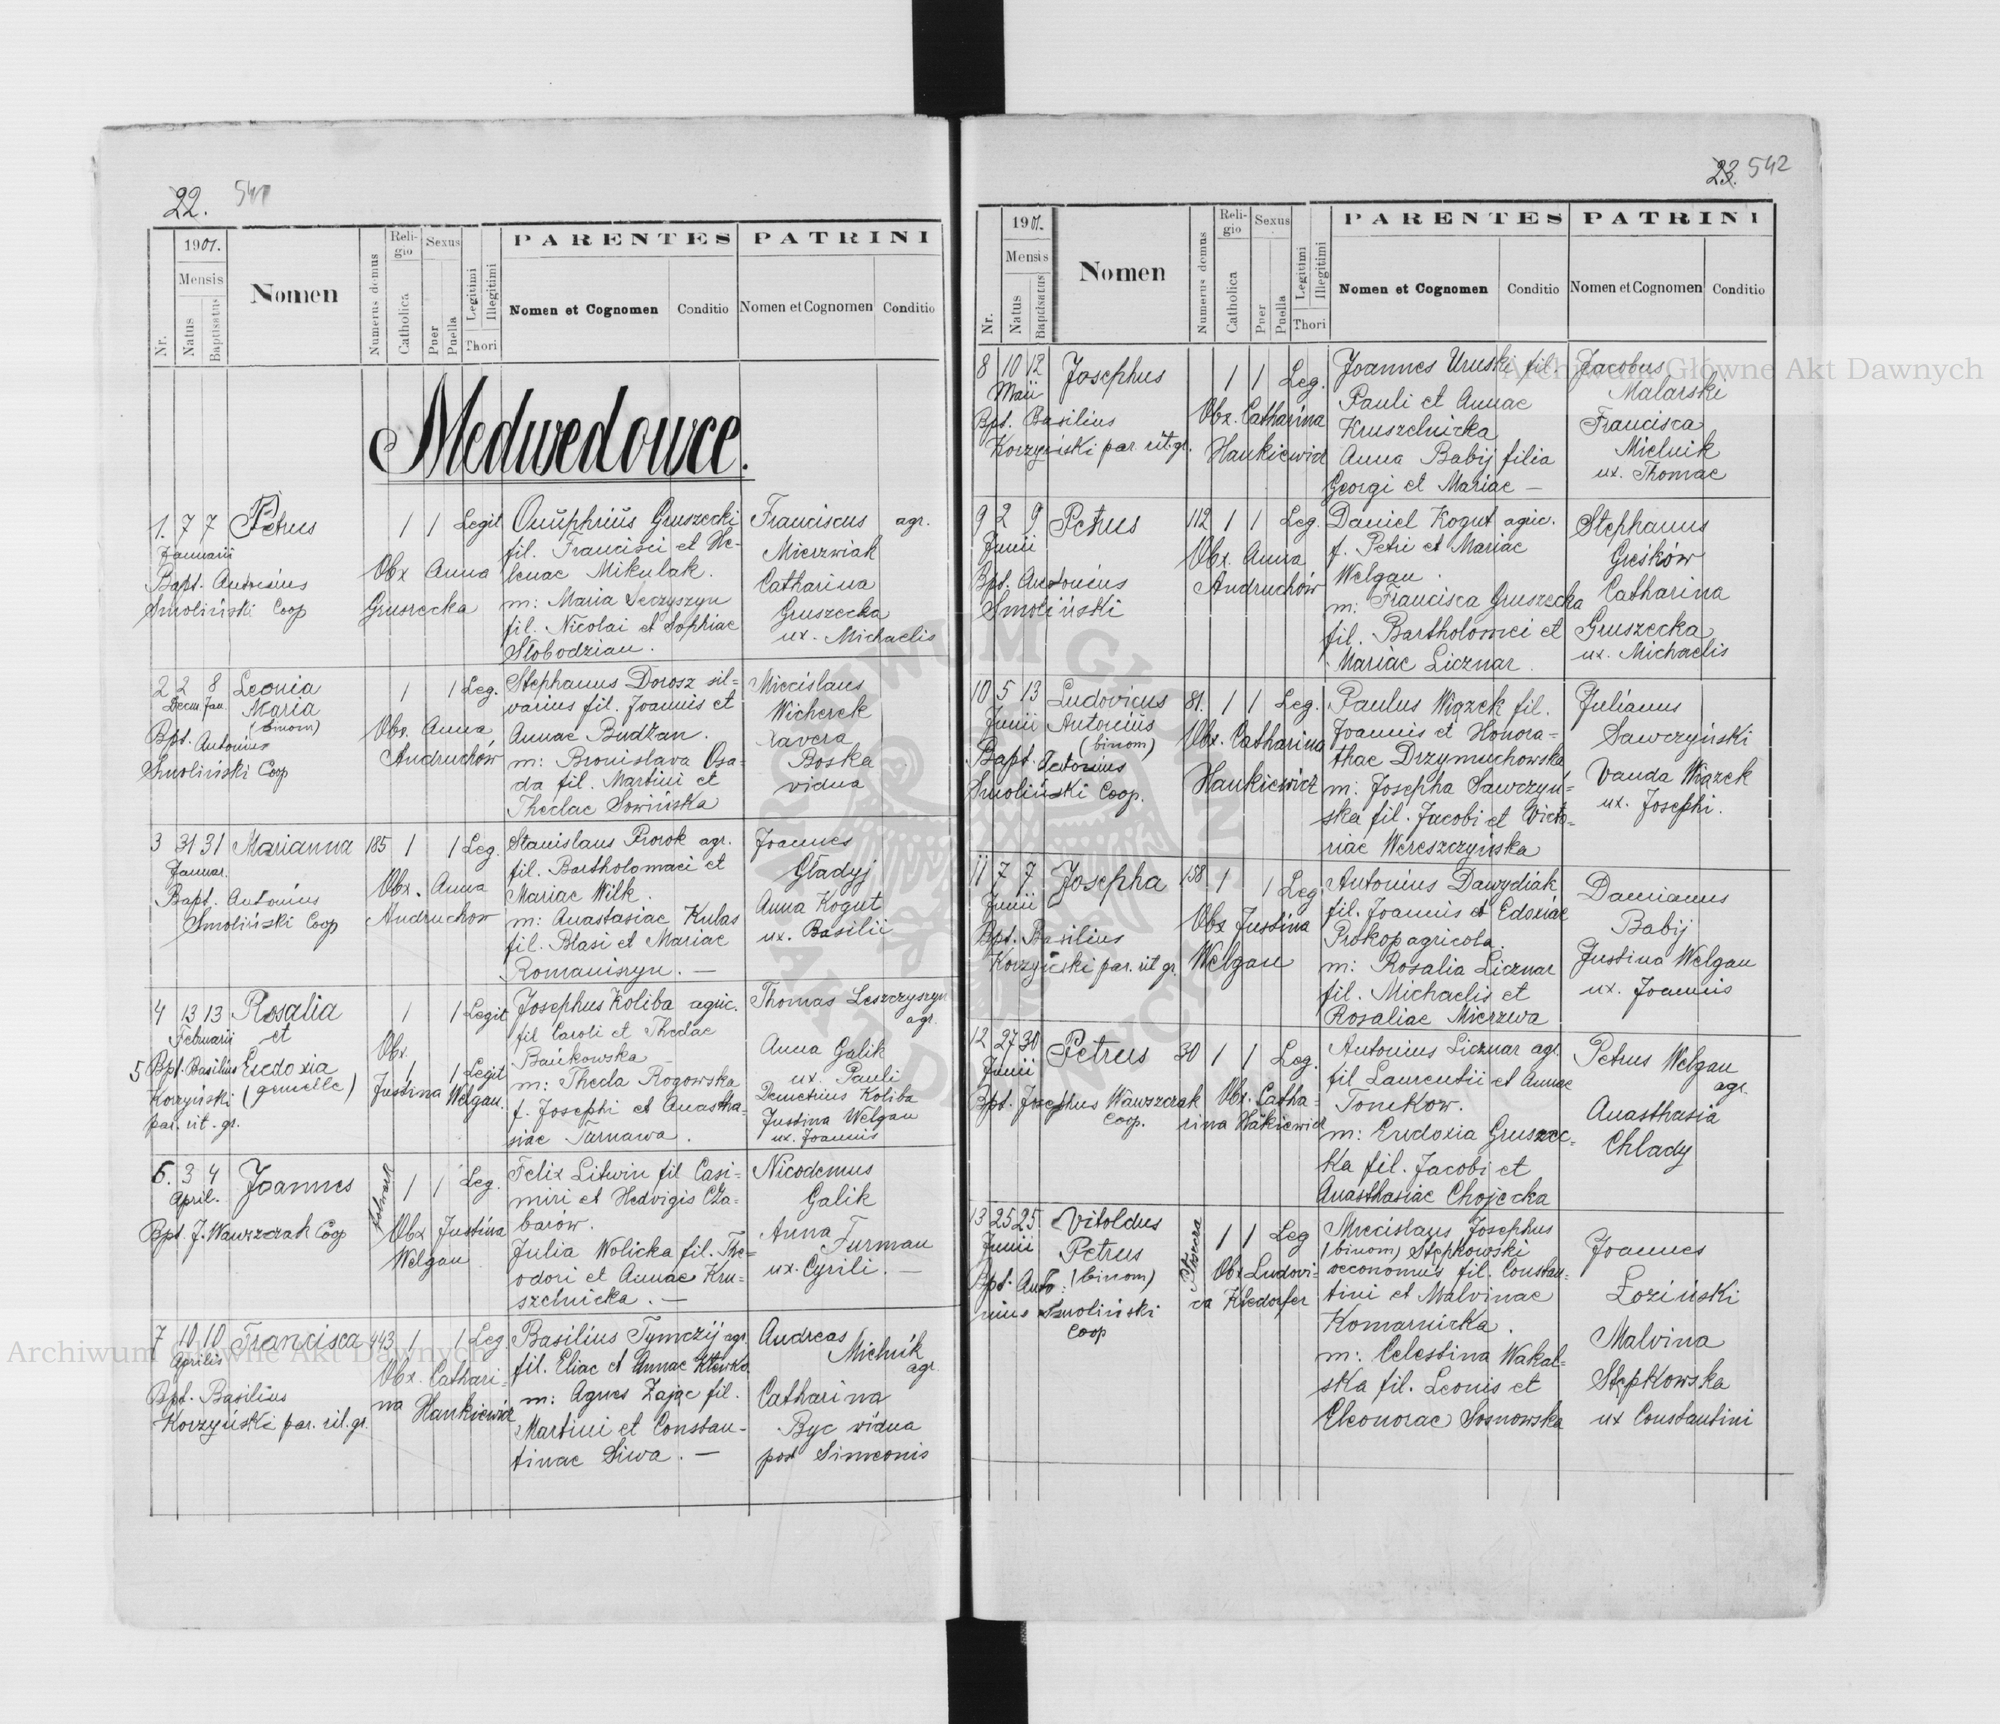 22. 541
1901.
Mensis
Nr.
Natus
Baptisatus
Nomen
Numerus domus
Religio
Catholica
Sexus
Puer
Puella
Legitimi
Illegitimi
Thori
PARENTES
Nomen et Cognomen
Conditio
PATRINI
Nomen et Cognomen
Conditio
Medwedowce.
1. 7 7 Petrus 1 1 Legit
Januarii
Bapt. Antonius
Smoliński Coop
Obx Anna
Gruszecka
Onuphrius Gruszecki
fil. Francisci et He-
lenae Mikulak.
m: Maria Leczyszyn
fil. Nicolai et Sophiae
Słobodzian.
Franciscus agr.
Mierzwiak
Catharina
Gruszecka
ux. Michaelis
2 2 8 Leonia 1 1 Leg.
Decem. Jan. Maria
(binom)
Bpt. Antonius
Smoliński Coop
Obx. Anna
Andruchów
Stephanus Dorosz sil=
varius fil. Joannis et
Annae Budżan.
m: Bronislava Osa-
da fil. Martini et
Theclae Sowińska
Miecislaus
Wicherek
Xavera
Boska
vidua
3 31 31 Marianna 185 1 1 Leg.
Januar.
Bapt. Antonius
Smoliński Coop
Obx. Anna
Andruchow
Stanislaus Prorok agr.
fil. Bartholomaei et
Mariae Wilk.
m: Anastasiae Kulas
fil. Blasi et Mariae
Romaniszyn. —
Joannes
Gładyj
Anna Kogut
ux. Basilii
4 13 13 Rosalia 1 1 Legit
Februarii et
5 Bpt. Basilius Eudoxia 1 1 Legit
Korzyński (gemellae)
par. rit. gr.
Obx.
Justina Welgan.
Josephus Koliba agric.
fil Caroli et Theclae
Bańkowska —
m: Thecla Rogowska
f. Josephi et Anastha-
siae Tarnawa.
Thomas Leszczyszyn
agr.
Anna Galik
ux. Pauli
Demetrius Koliba
Justina Welgan
ux. Joannis
6. 3 4 Joannes folwark 1 1 Leg.
April.
Bpt. J. Wawrzczak Coop
Obx Justina
Welgan
Felix Litwin fil Casi-
miri et Hedvigis Cża-
barów.
Julia Wolicka fil. The-
odori et Annae Kru-
szelnicka. —
Nicodemus
Galik
Anna
Furman
ux. Cyrili. —
7 10 10 Francisca 443 1 1 Leg
Aprilis
Bpt. Basilius
Korzyński par. rit. gr.
Obx. Cathari-
na Hankiewicz
Basilius Tymczij agr.
fil. Eliae et Annae Klewka
m: Agnes Zając fil.
Martini et Constan-
tinae Siwa. —
Andreas
Michnik
agr.
Catharina
Byc vidua
post Simeonis
23. 542
1901.
Mensis
Nr.
Natus
Baptisatus
Nomen
Numerus domus
Religio
Catholica
Sexus
Puer
Puella
Legitimi
Illegitimi
Thori
PARENTES
Nomen et Cognomen
Conditio
PATRINI
Nomen et Cognomen
Conditio
8 10 12 Josephus 1 1 Leg.
Maii
Bpt. Basilius
Korzyński par. rit. gr.
Obx. Catharina
Hankiewicz
Joannes Uruski fil.
Pauli et Annae
Kruszelnicka
Anna Babij filia
Georgi et Mariae —
Jacobus
Malarski
Francisca
Mielnik
ux. Thomae
9 2 9 Petrus 112 1 1 Leg.
Junii
Bpt. Antonius
Smoliński
Obx. Anna
Andruchów
Daniel Kogut agric.
f. Petri et Mariae
Welgan.
m: Francisca Gruszecka
fil. Bartholomei et
Mariae Licznar.
Stephanus
Greśków
Catharina
Gruszecka
ux. Michaelis
10 5 13 Ludovicus 81. 1 1 Leg.
Junii Antonius
(binom)
Bapt. Antonius
Smoliński Coop.
Obx. Catharina
Hankiewicz
Paulus Wiązek fil.
Joannis et Honora-
thae Drzymuchowska
m: Josepha Sawczyń-
ska fil. Jacobi et Victo-
riae Wereszczyńska
Julianus
Sawczyński
Vanda Wiązek
ux. Josephi.
11 7 7 Josepha 158 1 1 Leg
Junii
Bpt. Basilius
Korzyński par. rit gr.
Obx Justina
Welgan
Antonius Dawydiak
fil. Joannis et Edoxiae
Prokop agricola.
m: Rosalia Licznar
fil. Michaelis et
Rosaliae Mierzwa
Damianus
Babij
Justina Welgan
ux. Joannis
12 27 30 Petrus 30 1 1 Leg.
Junii
Bpt. Josephus Wawrzczak
Coop.
Obx. Catha-
rina Hakiewicz
Antonius Licznar agr.
fil Laurentii et Annae
Tomkow.
m: Eudoxia Gruszec-
ka fil. Jacobi et
Anasthasiae Chojecka
Petrus Welgan
agr.
Anasthasia
Chlady
13 25 25 Vitoldus 1 1 Leg
Junii Petrus
(binom)
Bpt. Anto-
nius Smoliński
Coop
Obx Ludovi-
ca Kledorfer
Miecislaus Josephus
(binom) Stępkowski
oeconomus fil. Constan-
tini et Malvinae
Komarnicka.
m: Celestina Wakal-
ska fil. Leonis et
Eleonorae Sosnowska
Joannes
Łoziński
Malvina
Stępkowska
ux Constantini
Archiwum Główne Akt Dawnych
Archiwum Główne Akt Dawnych